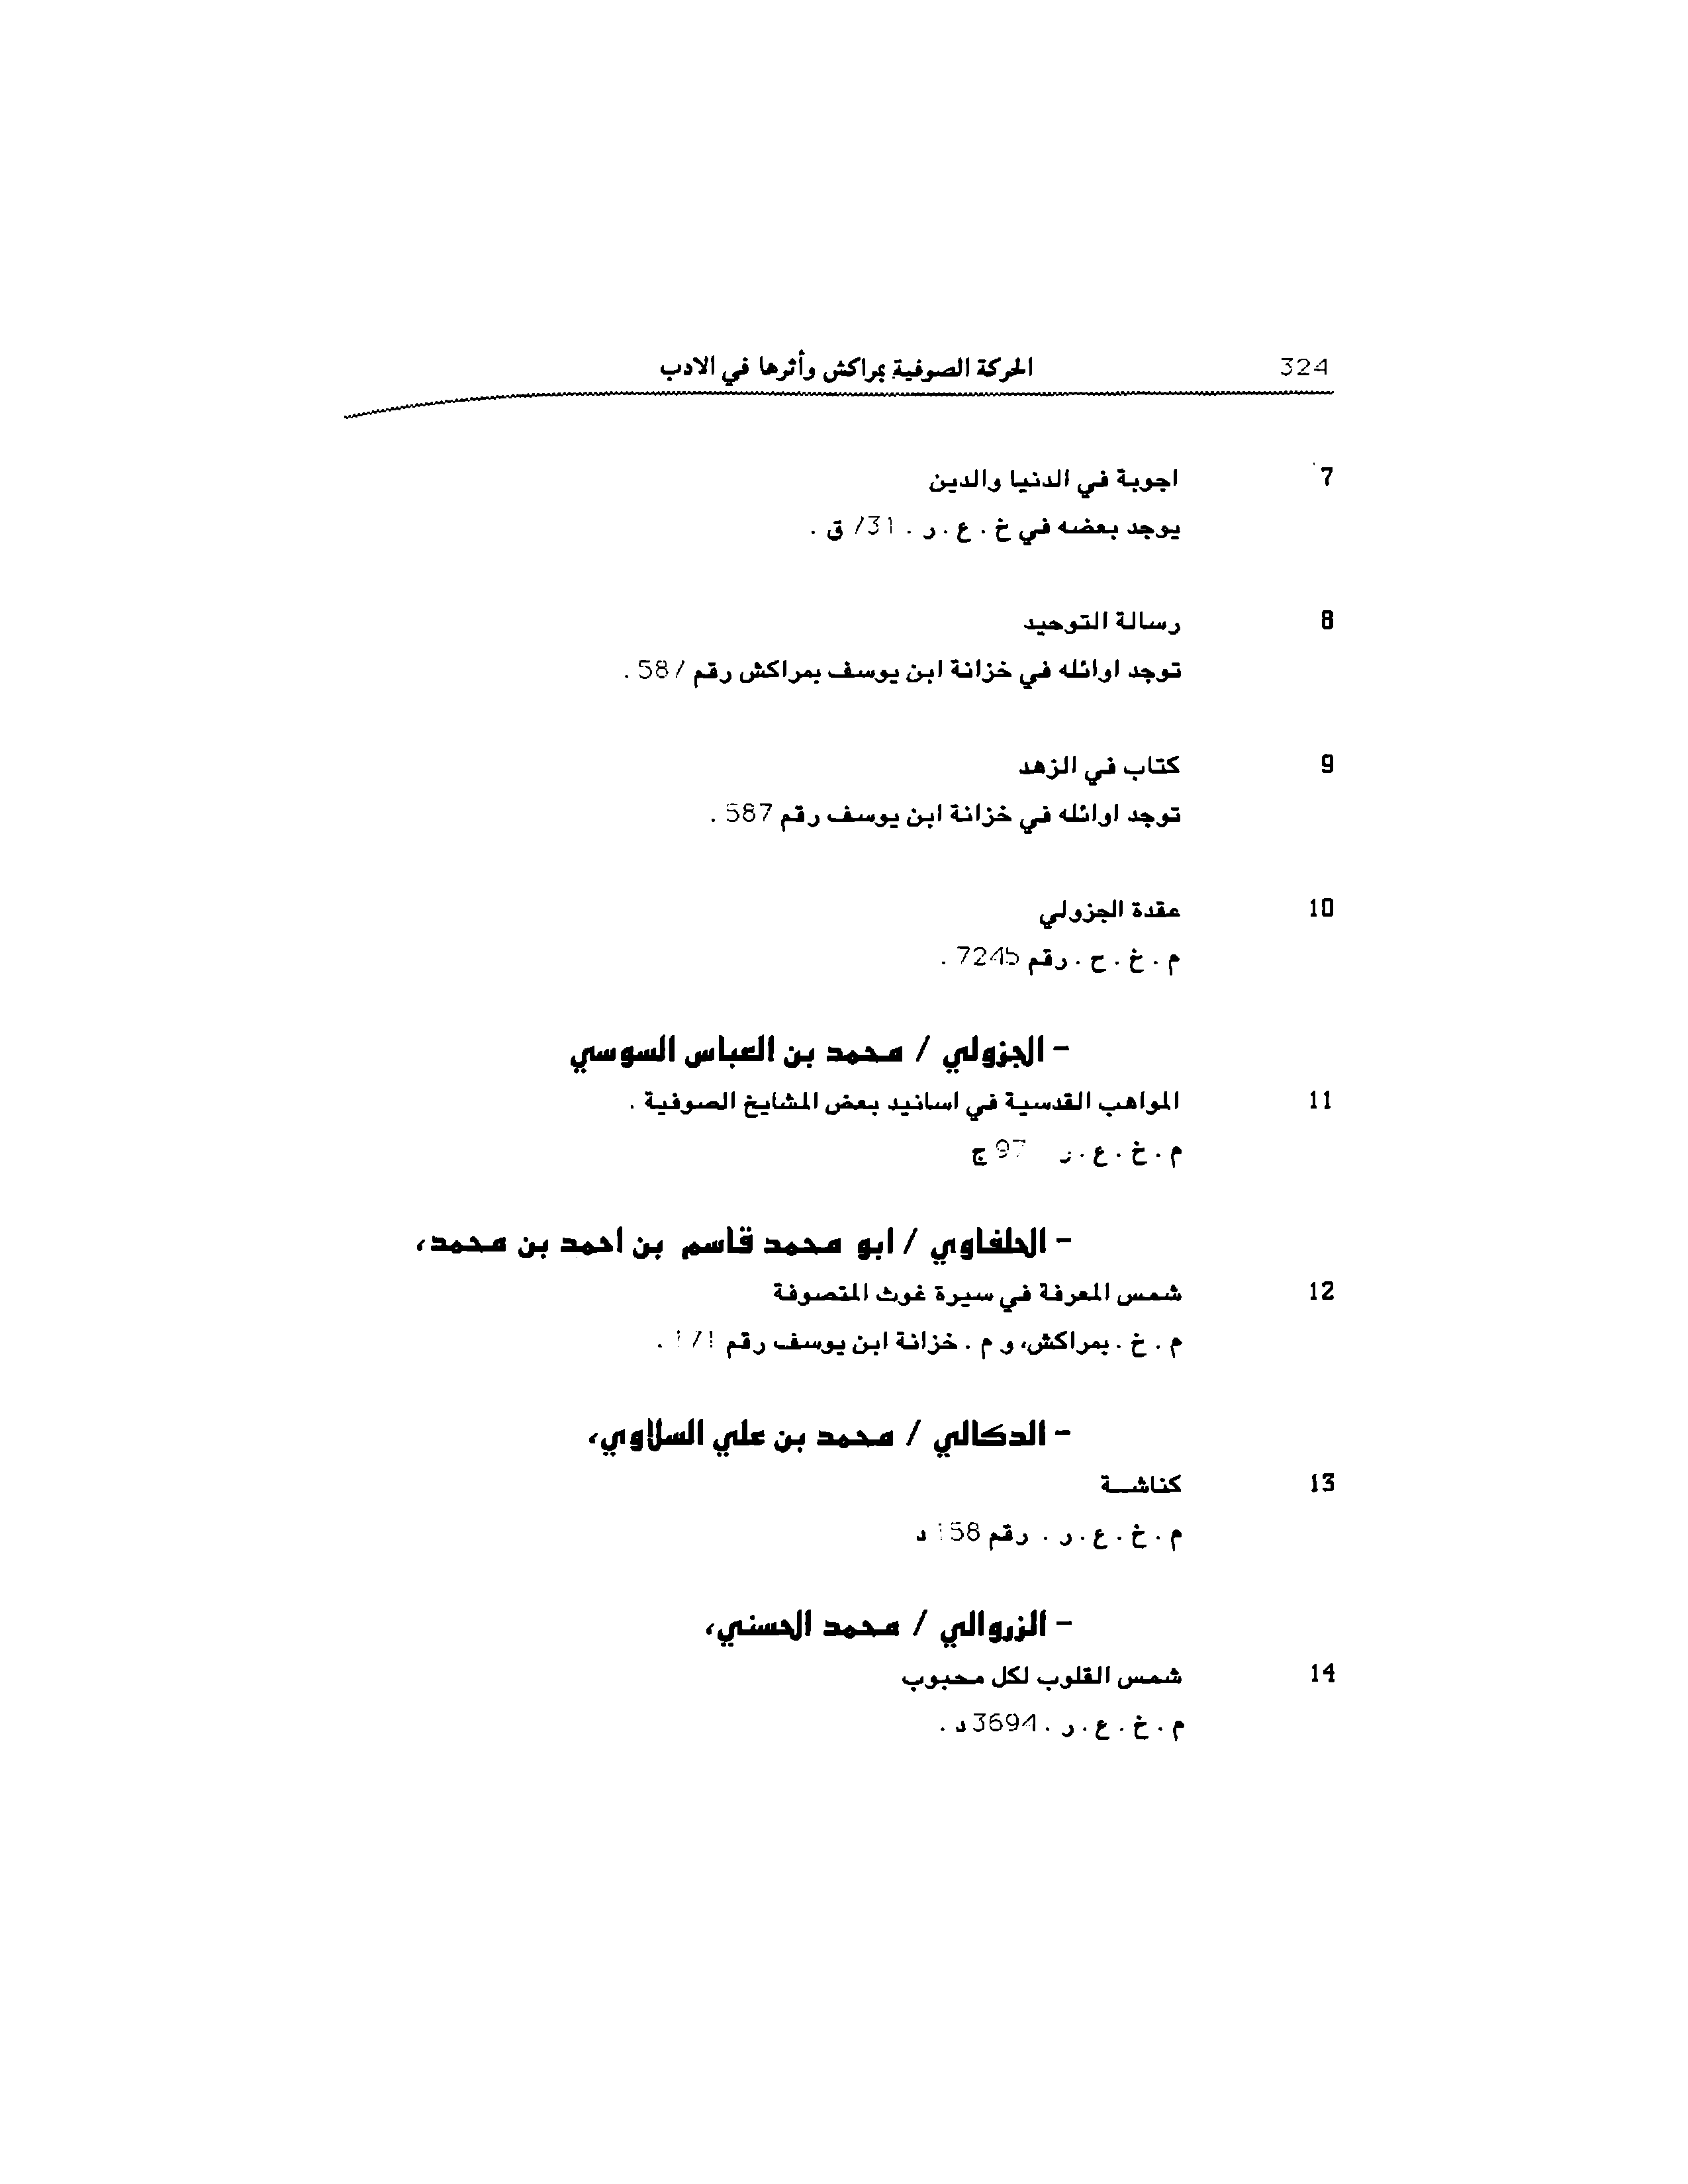 324 الحركة الصوفية بمراكش وأثرها في الادب
7 اجوبة في الدنيا والدين
يوجد بعضه في خ . ع . ر . ق .
8 رسالة التوحيد
توجد اوائله في خزانة ابن يوسف بمراكش رقم 587 .
9 كتاب في الزهد
توجد اوائله في خزانة ابن يوسف رقم 587 .
10 عقدة الجزولي
م . خ . ح . رقم 7245 .
- الجزولي / محمد بن العباس السوسي
11 المواهب القدسية في اسانيد بعض المشايخ الصوفية .
م . خ . ع . ر 97 ج
- الحلفاوي / ابو محمد قاسم بن احمد بن محمد،
12 شمس المعرفة في سيرة غوث المتصوفة
م . خ . بمراكش، و م . خزانة ابن يوسف رقم .
- الدكالي / محمد بن علي السلاوي،
13 كناشــة
م . خ . ع . ر . رقم 158 د
- الزروالي / محمد الحسني،
14 شمس القلوب لكل محبوب
م . خ . ع . ر . 3694 د .